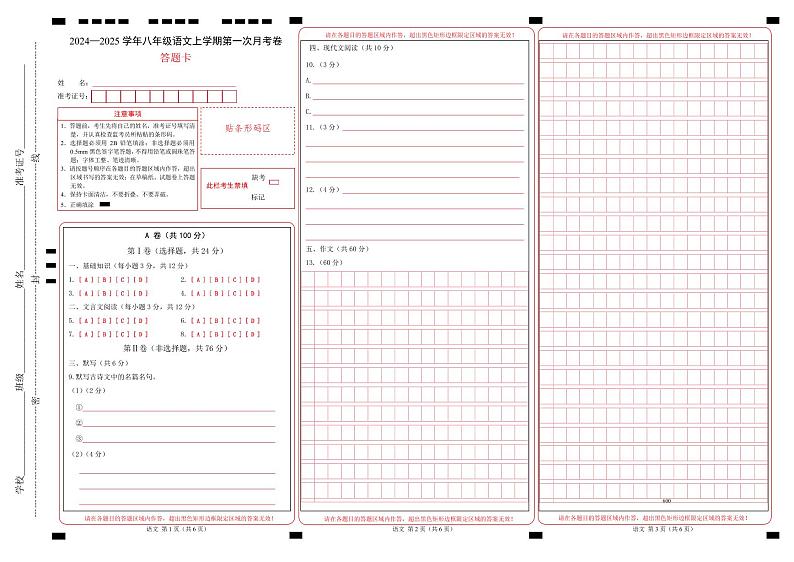 学校
班级
姓名
准考证号
密
封
线
2024—2025 学年八年级语文上学期第一次月考卷
答题卡
姓 名：
准考证号：
注意事项
1．答题前，考生先将自己的姓名，准考证号填写清
楚，并认真检查监考员所粘贴的条形码。
2．选择题必须用 2B 铅笔填涂；非选择题必须用
0.5mm 黑色签字笔答题，不得用铅笔或圆珠笔答
题；字体工整、笔迹清晰。
3．请按题号顺序在各题目的答题区域内作答，超出
区域书写的答案无效；在草稿纸、试题卷上答题
无效。
4．保持卡面清洁，不要折叠、不要弄破。
5．正确填涂
贴条形码区
此栏考生禁填
缺考
标记
A 卷（共 100 分）
第Ⅰ卷（选择题，共 24 分）
一、基础知识（每小题 3 分，共 12 分）
1.［A］［B］［C］［D］ 2.［A］［B］［C］［D］
3.［A］［B］［C］［D］ 4.［A］［B］［C］［D］
二、文言文阅读（每小题 3 分，共 12 分）
5.［A］［B］［C］［D］ 6.［A］［B］［C］［D］
7.［A］［B］［C］［D］ 8.［A］［B］［C］［D］
第Ⅱ卷（非选择题，共 76 分）
三、默写（共 6 分）
9.默写古诗文中的名篇名句。
（1）（2 分）
①
②
③
（2）（4 分）
请在各题目的答题区域内作答，超出黑色矩形边框限定区域的答案无效！
语文 第 1 页（共 6 页）
请在各题目的答题区域内作答，超出黑色矩形边框限定区域的答案无效！
四、现代文阅读（共 10 分）
10.（3 分）
A.
B.
C.
11.（3 分）
12.（4 分）
五、作文（共 60 分）
13.（60 分）
请在各题目的答题区域内作答，超出黑色矩形边框限定区域的答案无效！
语文 第 2 页（共 6 页）
请在各题目的答题区域内作答，超出黑色矩形边框限定区域的答案无效！
600
请在各题目的答题区域内作答，超出黑色矩形边框限定区域的答案无效！
语文 第 3 页（共 6 页）